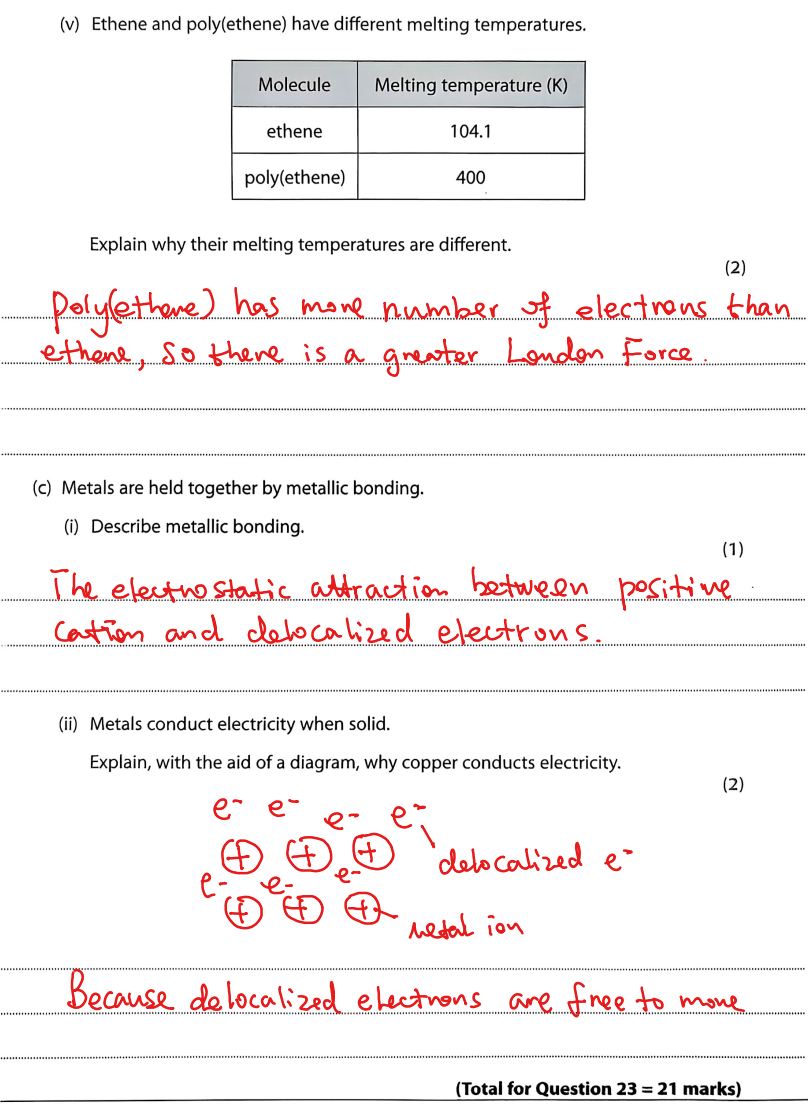 (v) Ethene and poly(ethene) have different melting temperatures.
Molecule Melting temperature (K)
ethene 104.1
poly(ethene) 400
Explain why their melting temperatures are different.
(2)
Poly(ethene) has more number of electrons than
ethene, so there is a greater London Force.
(c) Metals are held together by metallic bonding.
(i) Describe metallic bonding.
(1)
The electrostatic attraction between positive
cation and delocalized electrons.
(ii) Metals conduct electricity when solid.
Explain, with the aid of a diagram, why copper conducts electricity.
(2)
e- e- e- e-
+ + + delocalized e-
e- e- e-
+ + + metal ion
Because delocalized electrons are free to move
(Total for Question 23 = 21 marks)